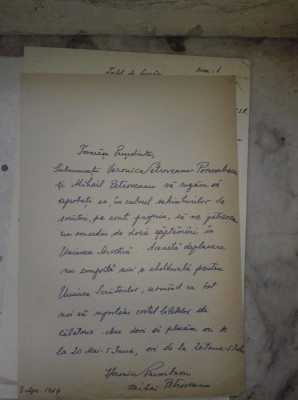 Tovarășe Președinte,
Subsemnații Veronica Petroveanu Porumbacu
și Mihail Petroveanu vă rugăm să
aprobați ca, în cadrul schimburilor de
scriitori, pe cont propriu, să ne petrecem
un concediu de două săptămîni în
Uniunea Sovietică. Această deplasare
nu comportă nici o cheltuială pentru
Uniunea Scriitorilor, urmând ca tot
noi să suportăm costul biletelor de
călătorie. Am dori să plecăm ori de
la 20 Mai-5 Iunie, ori de la 20 Iunie-5 Iulie
Veronica Porumbacu
Mihai Petroveanu
1964